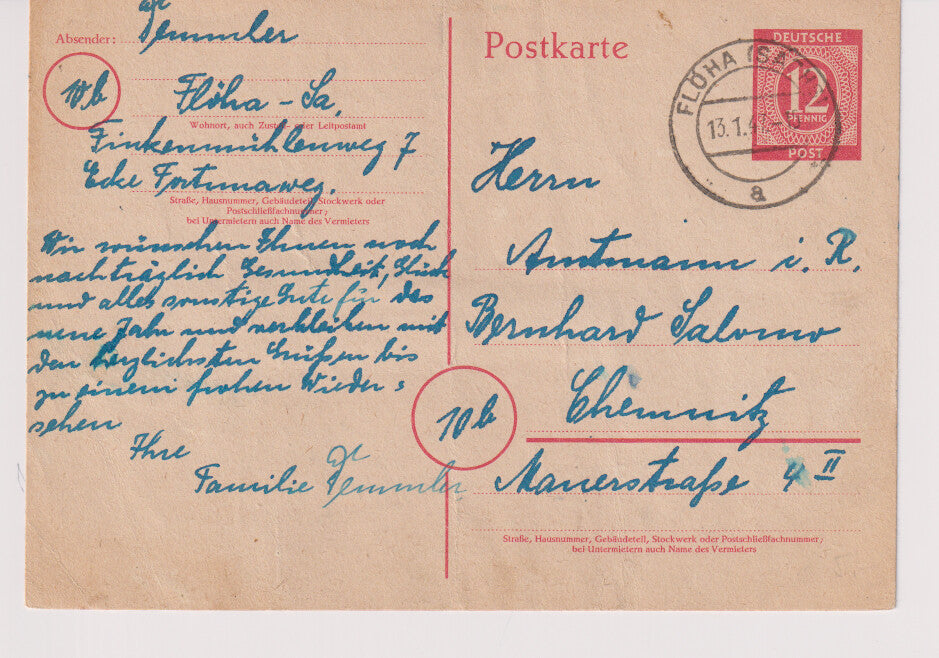 Absender: Demmler
10b
Flöha - Sa.
Wohnort, auch Zustell- oder Leitpostamt
Finkenmühlenweg 7
Ecke Fortunaweg.
Straße, Hausnummer, Gebäudeteil, Stockwerk oder
Postschließfachnummer;
bei Untermietern auch Name des Vermieters
Wir wünschen Ihnen noch
nachträglich Gesundheit, Glück
und alles sonstige Gute für das
neue Jahr und verbleiben mit
den herzlichsten Grüßen bis
zu einem frohen Wieder=
sehen
Ihre
Familie Demmler
Postkarte
DEUTSCHE
12
PFENNIG
POST
FLÖHA (SA
13.1.4
a
Herrn
Amtmann i. R.
Bernhard Salomo
10b
Chemnitz
Mauerstraße 4 II
Straße, Hausnummer, Gebäudeteil, Stockwerk oder Postschließfachnummer;
bei Untermietern auch Name des Vermieters